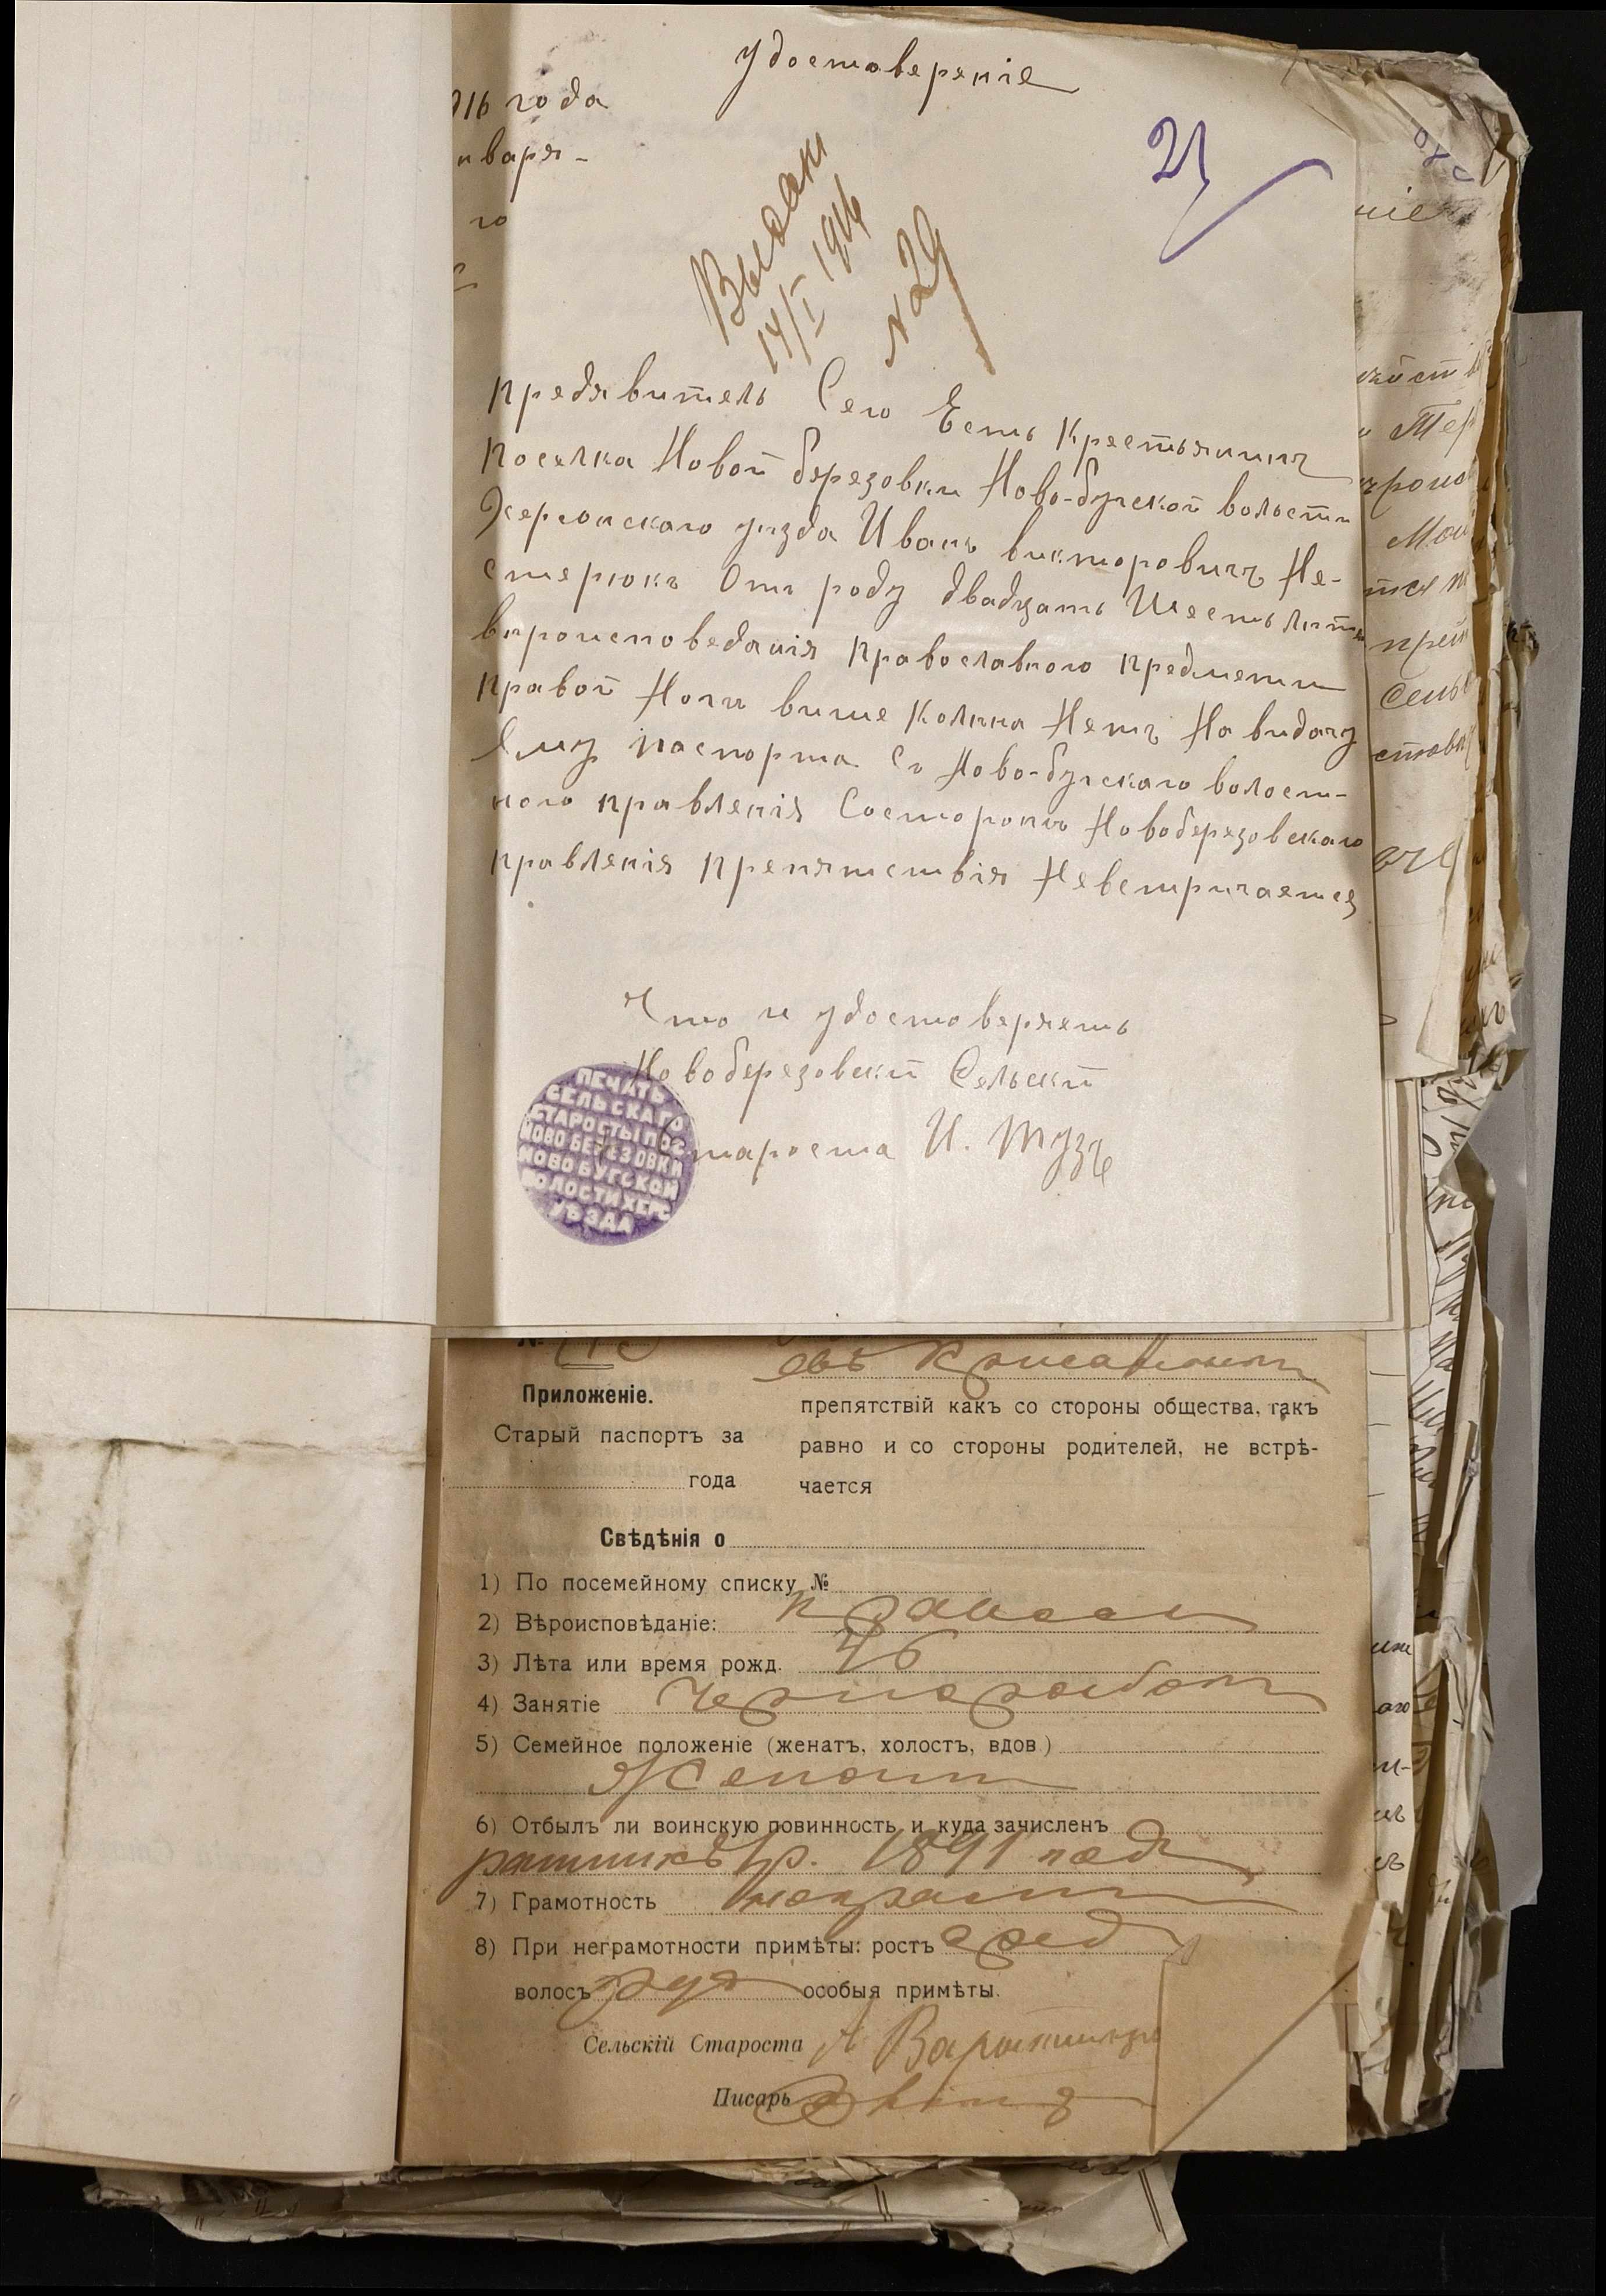 удостоверение
916 года
нваря -
го
21
Выдан
14/I 1916
№ 29
предявитель Сего Есть Крестьянинъ
поселка Новой березовки Ново-бугской вольсти
Херсонскаго уезда Иванъ викторовичъ Не-
стерюкъ Отъ роду двадцать Шесть летъ
вероисповеданія православного предмети
правой Ноги више Колена Нетъ На видачу
Ему паспорта Съ Ново-бугскаго волост-
ного правленія Состороны Новоберезовскаго
правленія препятствія Невстричается
Что и удостоверяеть
Новоберезовскй Сельскй
Староста И. Тузъ
ПЕЧАТЬ
СЕЛЬСКАГО
СТАРОСТЫ ПОС
НОВО БЕРЕЗОВКИ
НОВО БУГСКОЙ
ВОЛОСТИ ХЕРС
УѢЗДА
Приложеніе.
Старый паспортъ за
года
препятствій какъ со стороны общества, такъ
равно и со стороны родителей, не встрѣ-
чается
Свѣдѣнія о
1) По посемейному списку №
2) Вѣроисповѣданіе: правосл
3) Лѣта или время рожд. 46
4) Занятіе чернорабоч
5) Семейное положеніе (женатъ, холостъ, вдов.)
Женатъ
6) Отбылъ ли воинскую повинность и куда зачисленъ
ратникъ 1р. 1891 года
7) Грамотность неграмот
8) При неграмотности примѣты: ростъ сред
волосъ рус особыя примѣты.
Сельскій Староста
Писарь